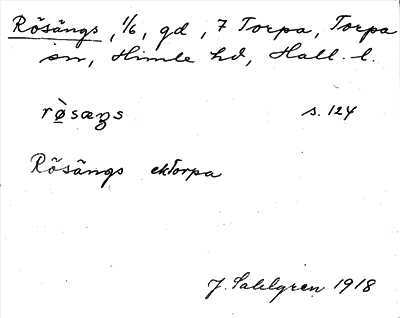 Rösängs, 1/6, gd, 7 Torpa, Torpa
sn, Himle hd, Hall. l.
rø̀sæŋs s. 124
Rösängs ekTorpa
J. Sahlgren 1918